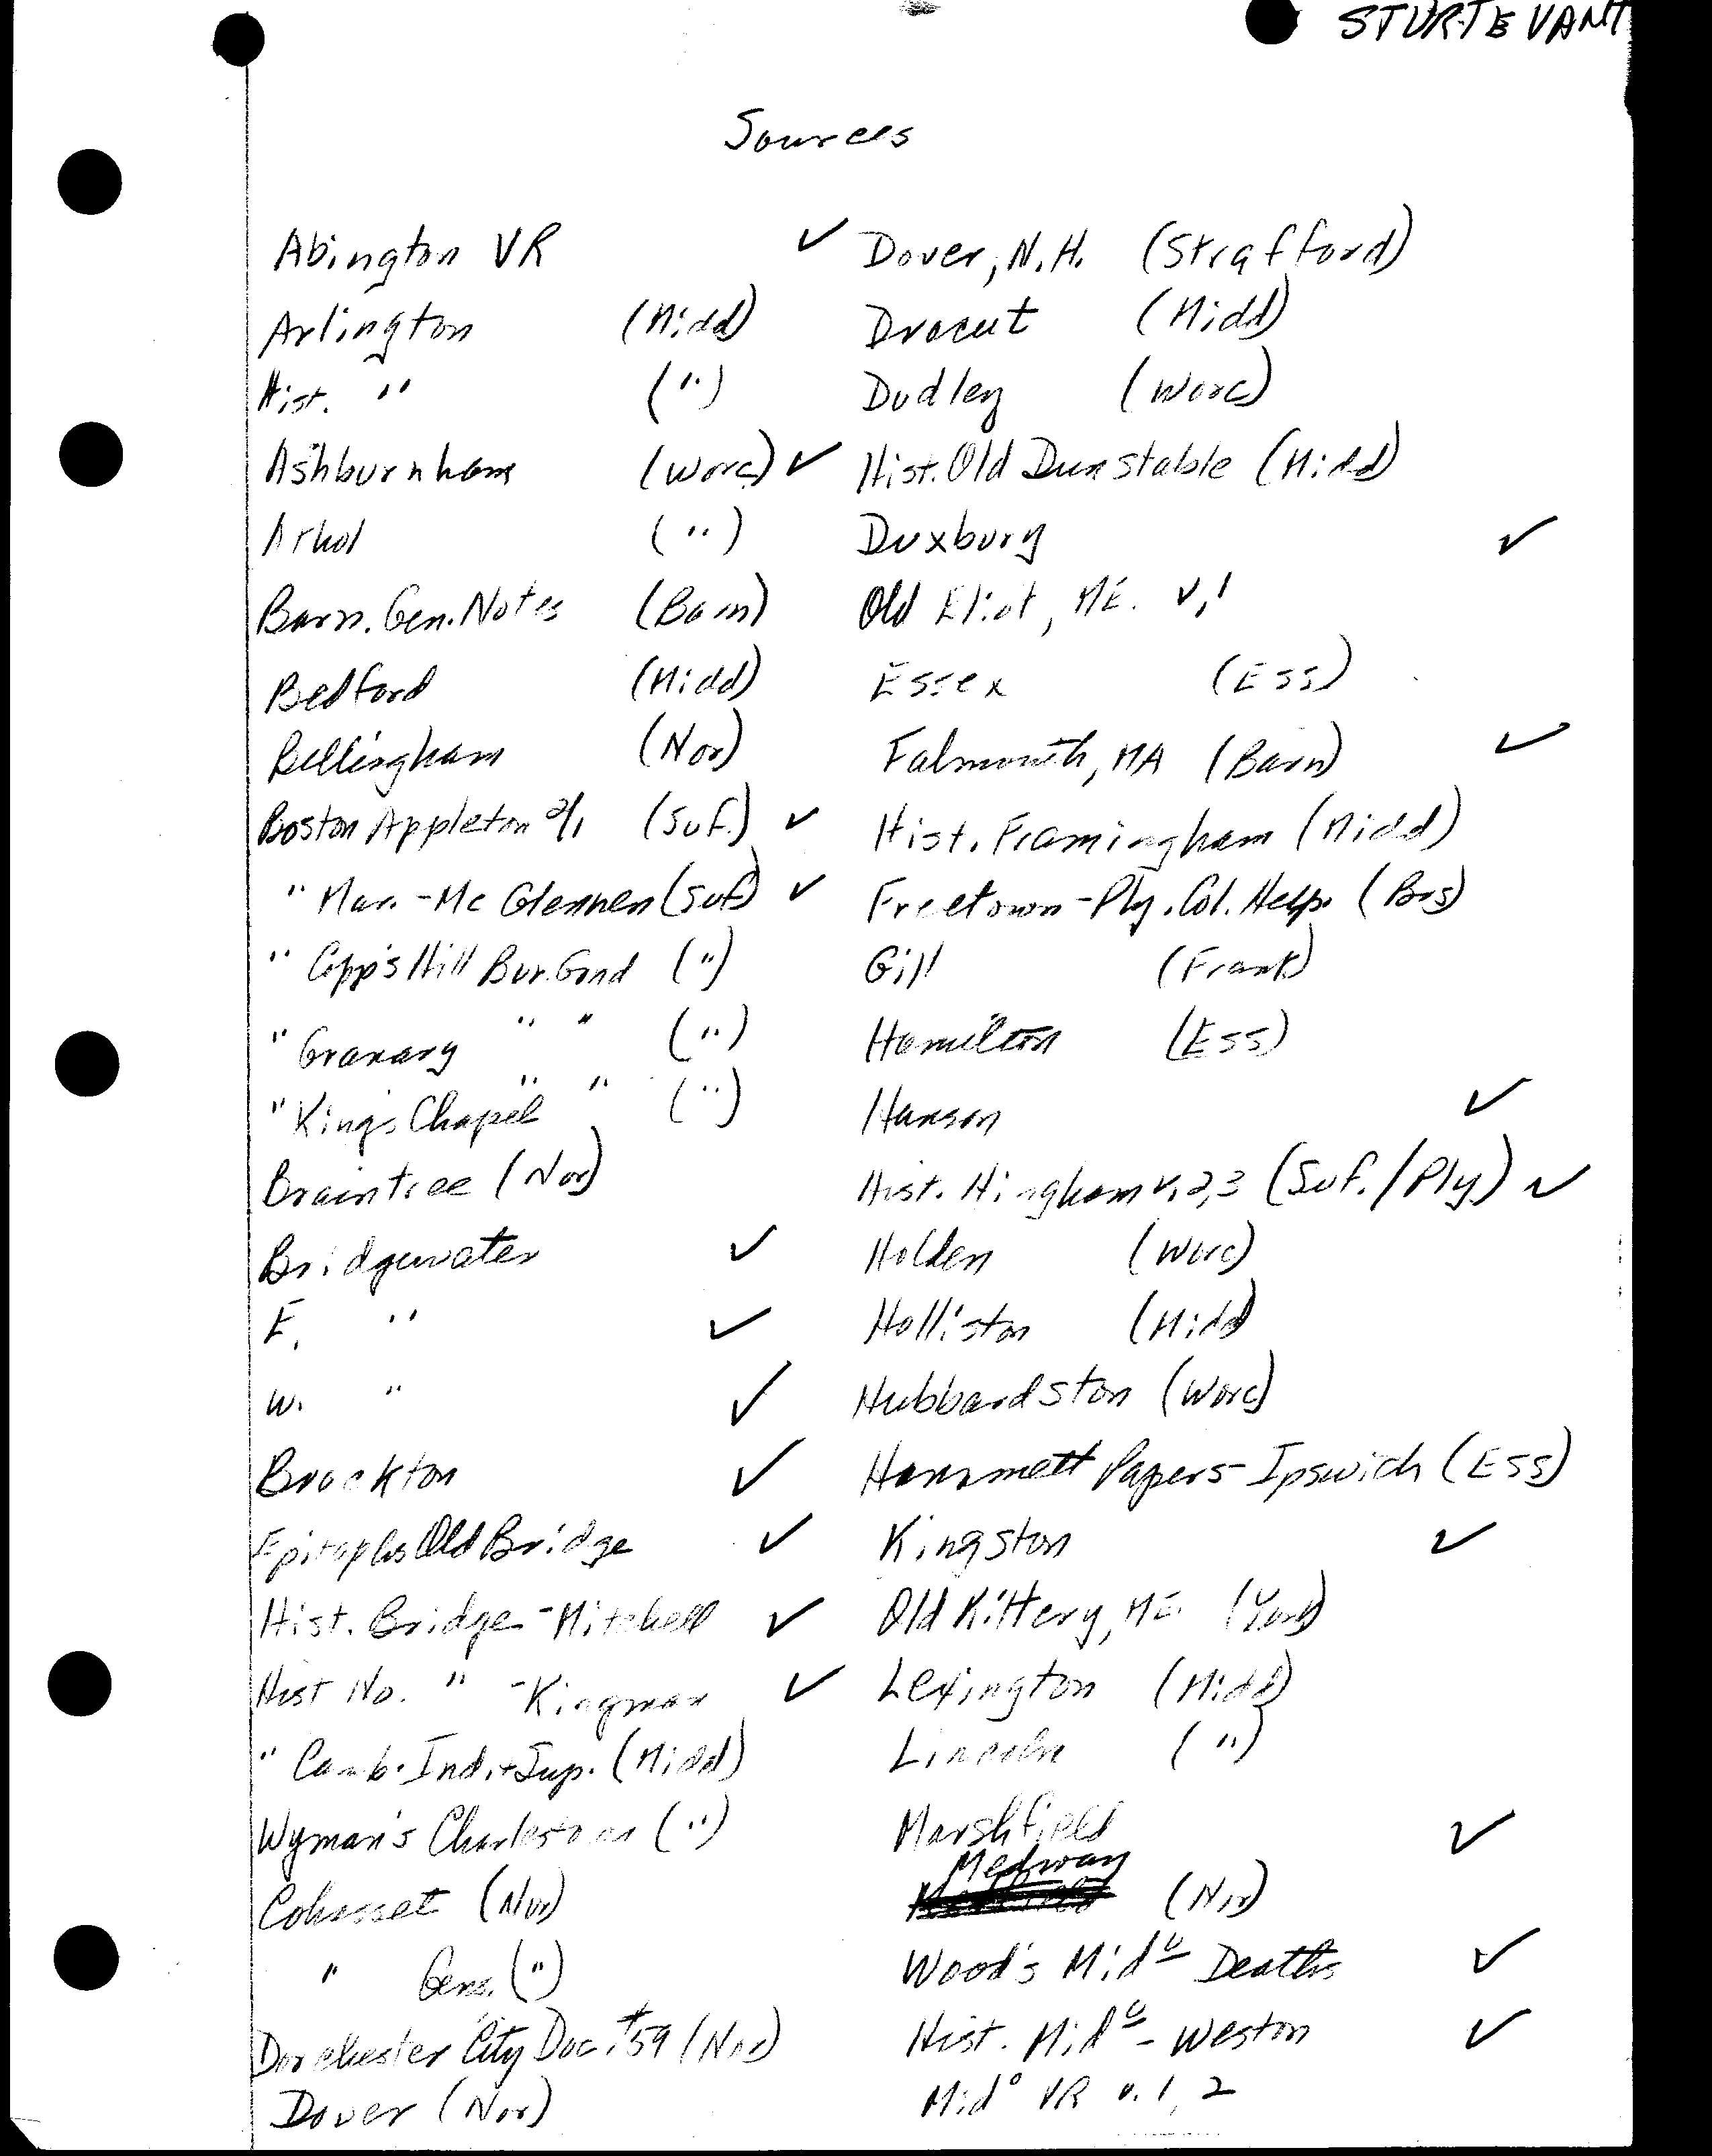 STURTEVANT
Sources
Abington VR ✓
Arlington (Midd)
Hist. " (")
Ashburnham (Worc) ✓
Athol (")
Barn. Gen. Notes (Barn)
Bedford (Midd)
Bellingham (Nor)
Boston Appleton 2/1 (Suf.) ✓
" Mar. - McGlennen (Suf) ✓
" Copp's Hill Bur. Grnd (")
" Granary " " (")
" King's Chapel " " (")
Braintree (Nor)
Bridgewater ✓
E. " ✓
W. " ✓
Brockton ✓
Epitaphs Old Bridge ✓
Hist. Bridge - Mitchell ✓
Hist No. " - Kingman ✓
" Camb. Ind. + Sup. (Midd)
Wyman's Charlestown (")
Cohasset (Nor)
" Gens. (")
Dorchester City Doc. #59 (Nor)
Dover (Nor)
Dover, N.H. (Strafford)
Dracut (Midd)
Dudley (Worc)
Hist. Old Dunstable (Midd)
Duxbury ✓
Old Eliot, ME. v, 1
Essex (Ess)
Falmouth, MA (Barn) ✓
Hist. Framingham (Midd)
Freetown - Ply. Col. Help. (Brs)
Gill (Frank)
Hamilton (Ess)
Hanson ✓
Hist. Hingham v. 2, 3 (Suf. / Ply) ✓
Holden (Worc)
Holliston (Midd)
Hubbardston (Worc)
Hammett Papers - Ipswich (Ess)
Kingston ✓
Old Kittery, ME. (York)
Lexington (Midd)
Lincoln (")
Marshfield ✓
Medway (Nor)
Wood's Mido Deaths ✓
Hist. Mido - Weston ✓
Mido VR v. 1, 2